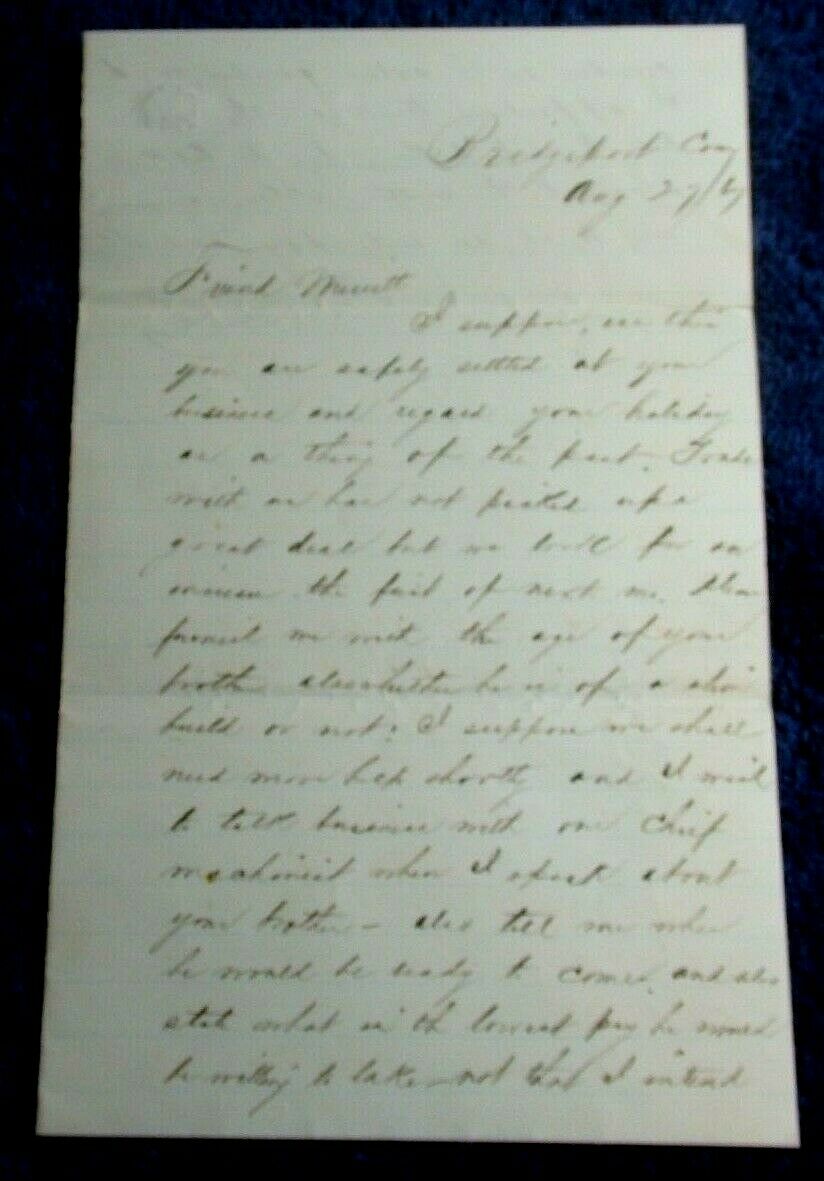 Bridgeport Conn
Aug 27/
Friend Merritt
I suppose, ere this
you are safely settled at your
business and regard your holiday
as a thing of the past. Trade
with us has not picked up a
great deal but we look for an
increase the first of next mo. Please
furnish me with the age of your
brother also whether he is of a
build or not? I suppose we shall
need more help shortly and I
to talk business with our chief
machinist when I speak about
your brother - also tell me when
he would be ready to come. and also
state what is the lowest pay he would
be willing to take - not that I intend